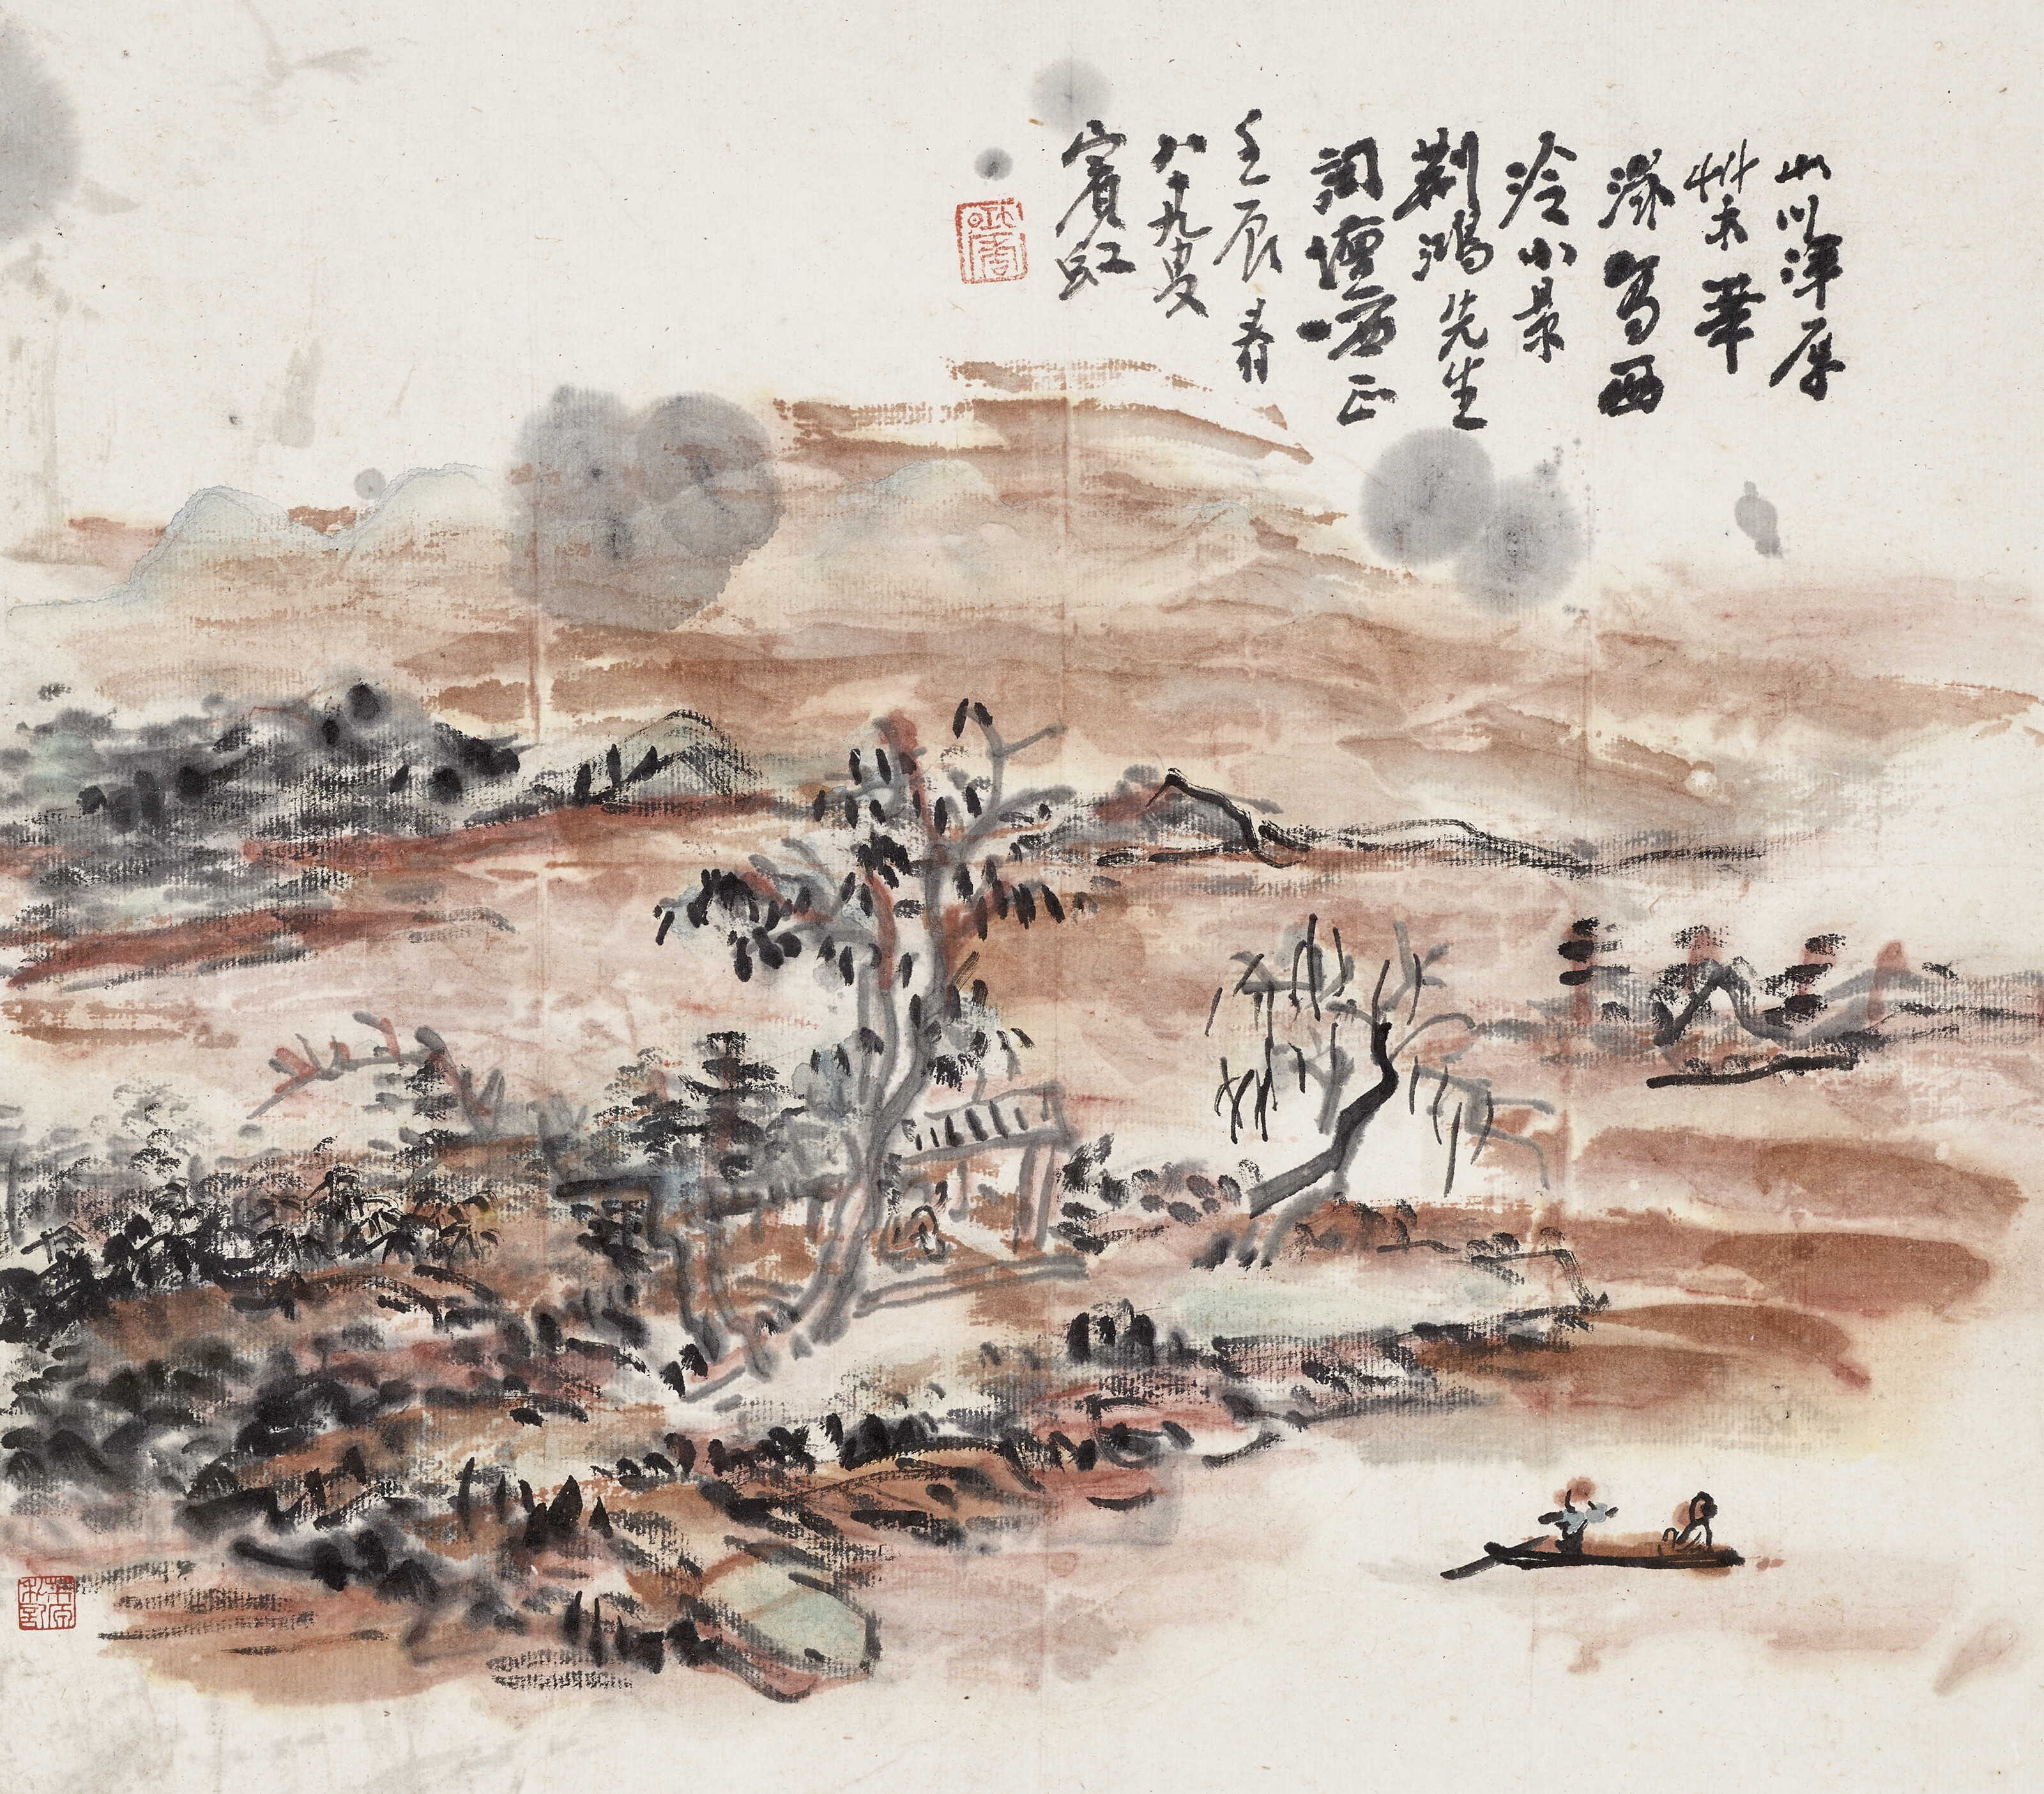 山川渾厚
艸木華
滋寫西
泠小景
荆鴻先生
詞壇哂正
壬辰春
八十九叟
賓虹